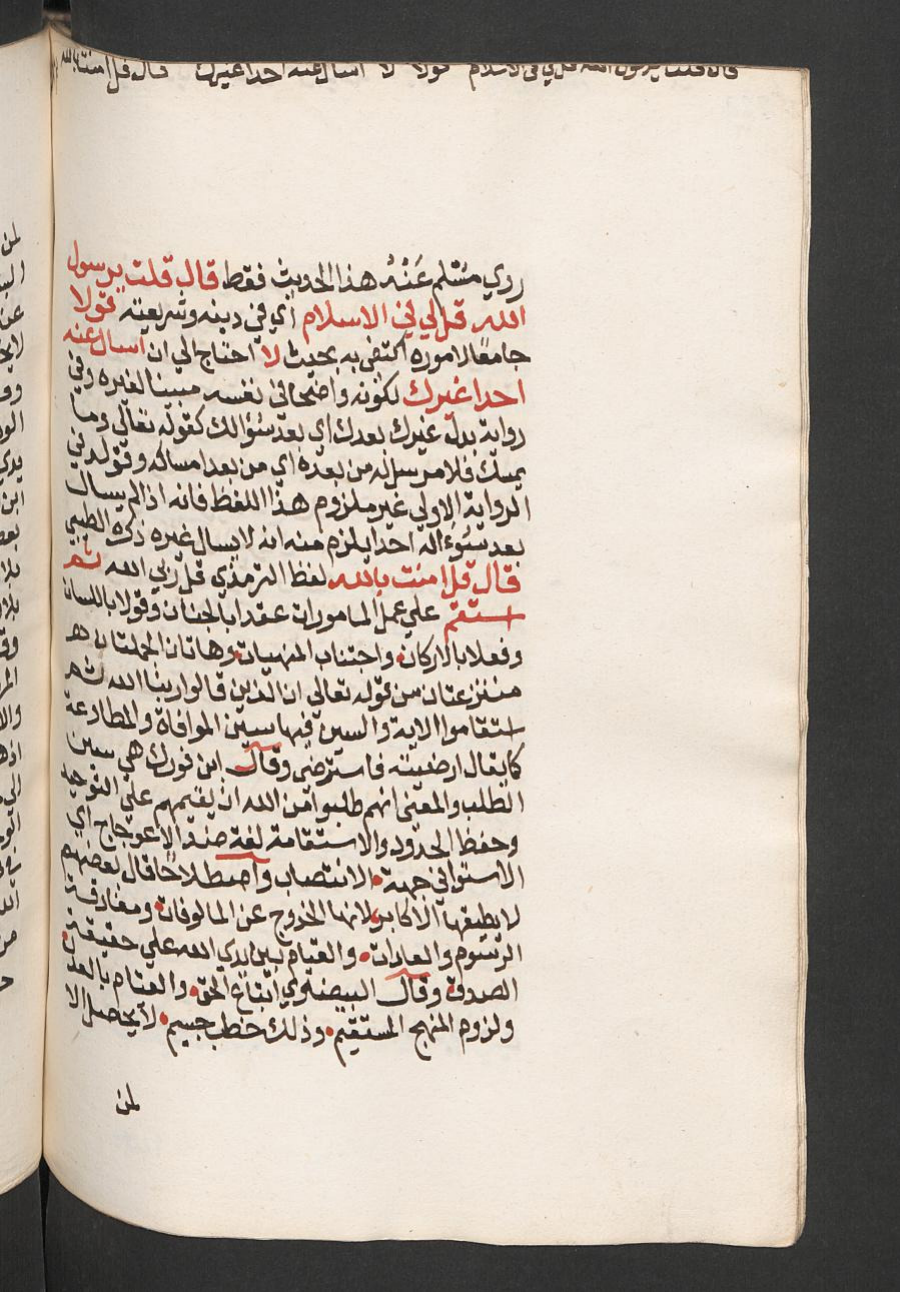 قال قلت يرسول الله قل لي في الاسلام قولا لا اسال عنه احدا غيرك قال قل امنت بالله
روي مسلم عَنْهُ هذا الحديث فقط قال قلت يرسول
الله قل لي في الاسلام اي في دينه وشريعته قولا
جامعًا لاموره اكتفي به بحيث لا احتاج الي ان اسال عنه
احدا غيرك لكونه واضحا في نفسه مبينا لغيره وفي
رواية بدل غيرك بعدك اي بعد سؤالك كقوله تعالي وما
يمسك فلا مرسل له من بعده اي من بعد امساكه وقوله في
الرواية الاولي غير ملزوم هذا اللفظ فانه اذا لم يسال
بعد سؤاله احدا يلزم منه انه لا يسال غيره ذكره الطيبي
قال قل امنت بالله لفظ الترمذي قل ربي الله ثم
استقم علي عمل المامورات عقدا بالجنان وقولا باللسان
وفعلا بالاركان واجتناب المنهيات وهاتان الجملتان
منتزعتان من قوله تعالي ان الذين قالوا ربنا الله ثم
استقاموا الاية والسين فيها سين الموافاة والمطاوعة
كما يقال ارضيته فاسترضي وقال ابن فورك هي سين
الطلب والمعني انهم طلبوا من الله ان يقيمهم علي التوحيد
وحفظ الحدود والاستقامة لغة ضد الاعوجاج اي
الاستوا في جهة الانتصاب واصطلاحًا قال بعضهم
لا يطيقها الا الاكابر لانها الخروج عن المالوفات ومفارقة
الرسوم والعادات والقيام بين يدي الله علي حقيقة
الصدق وقال البيضاوي اتباع الحق والقيام بالعدل
ولزوم المنهج المستقيم وذلك خطب جسيم لا يحصل الا
لمن